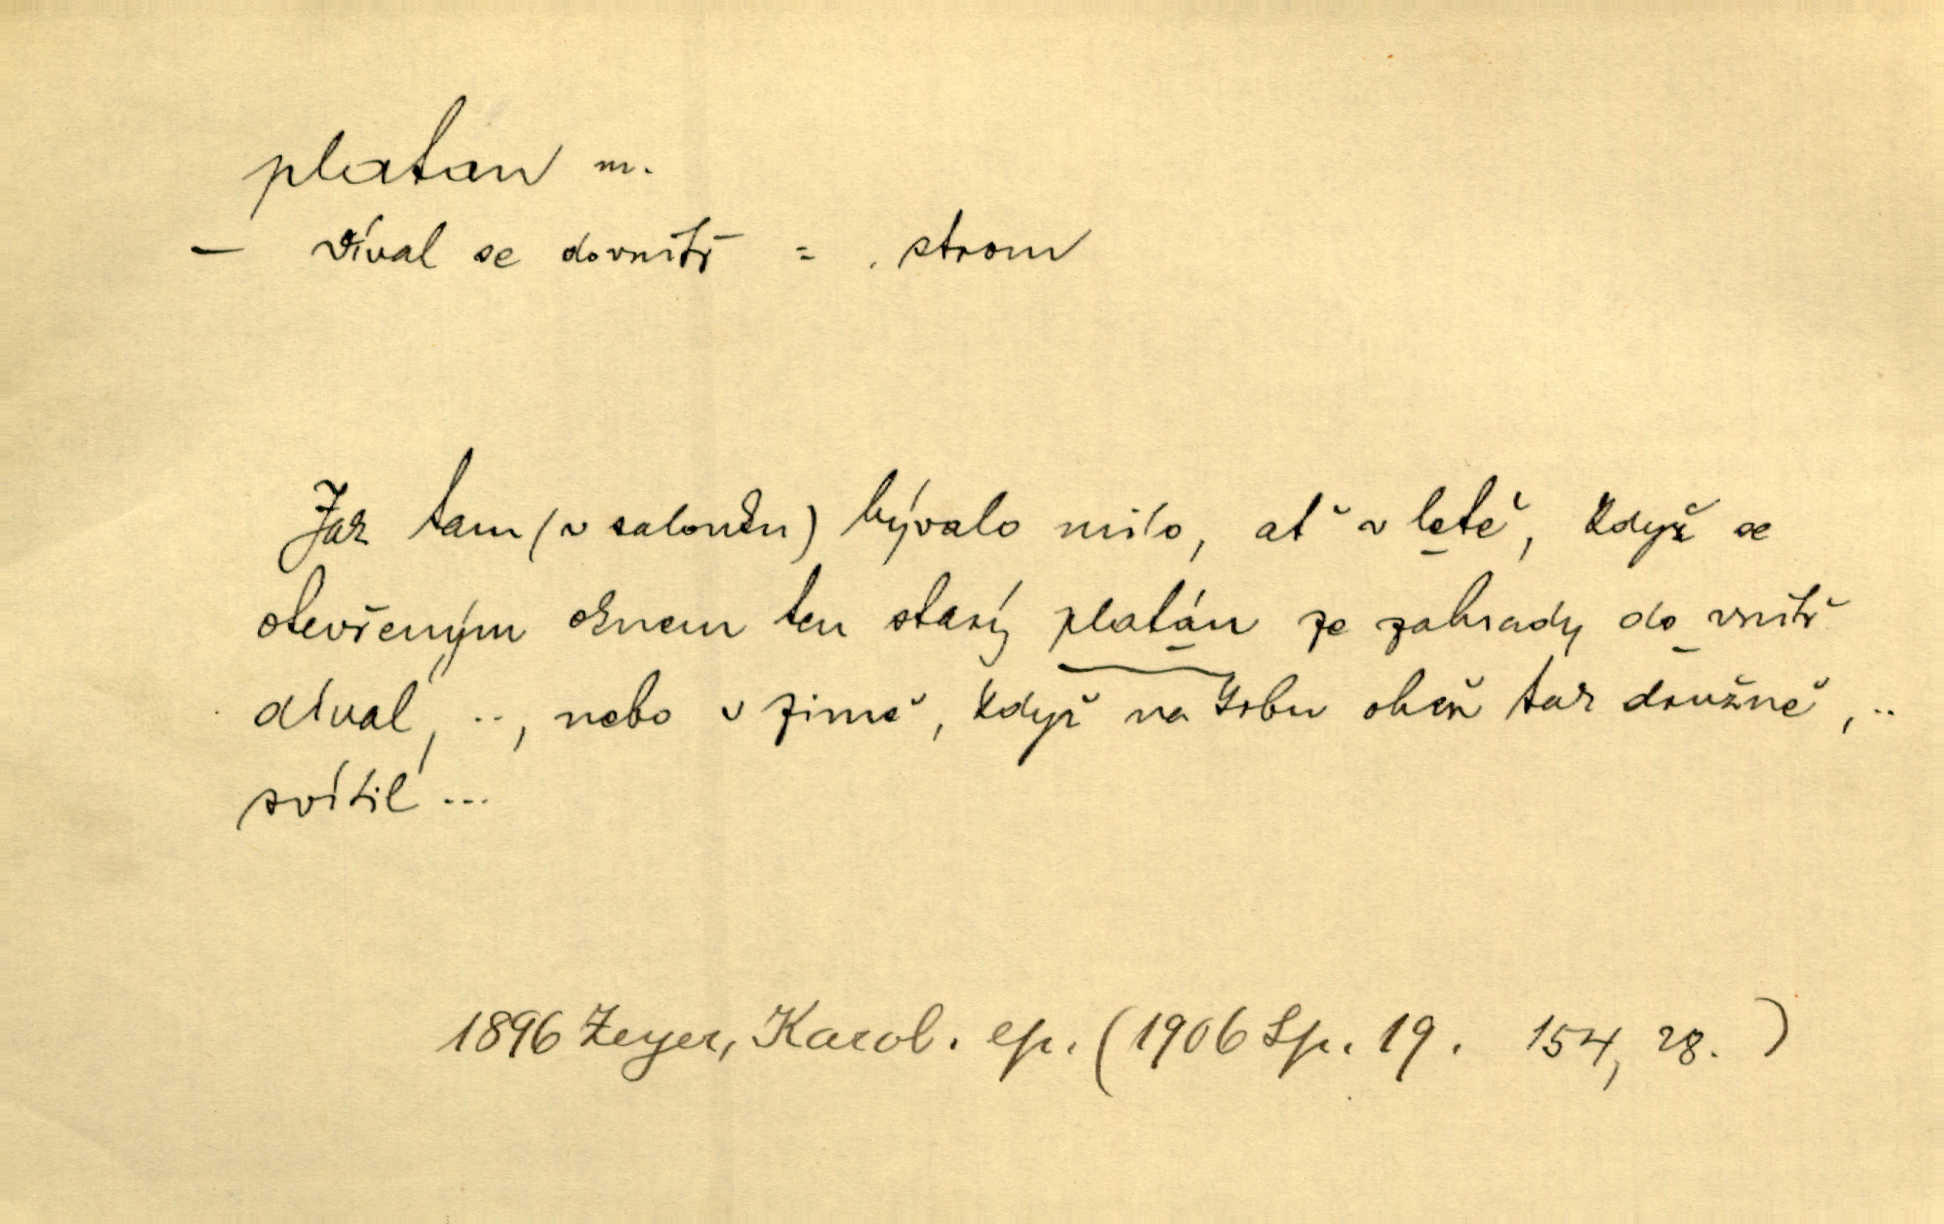 platan m.
— díval se dovnitř = strom
Jak tam (v salonku) bývalo milo, ať v letě, když se
otevřeným oknem ten starý platán ze zahrady do vnitř
díval, .., nebo v zimě, když na krbu oheň tak družně, ..
svítil ...
1896 Zeyer, Karol. ep. (1906 Sp. 19. 154, 28.)